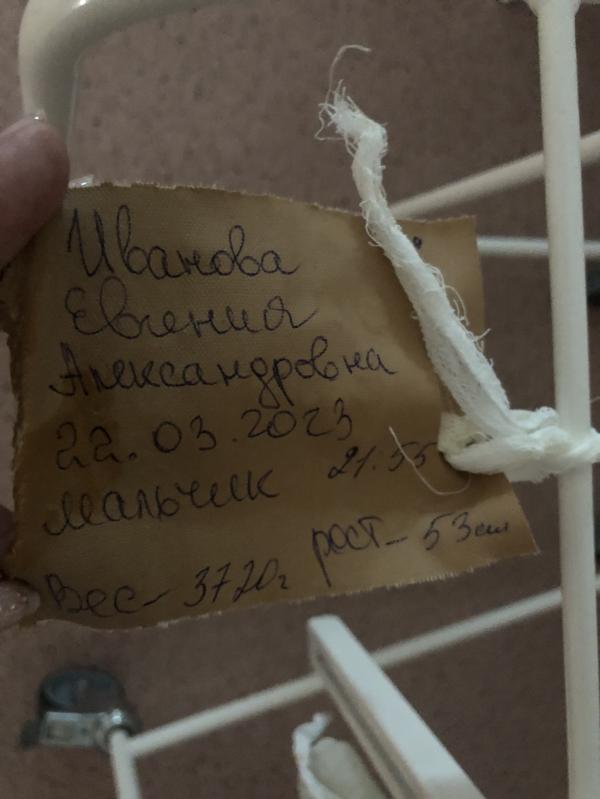 Иванова
Евгения
Александровна
22.03.2023
мальчик 21.55
Вес- 3720г рост- 53см